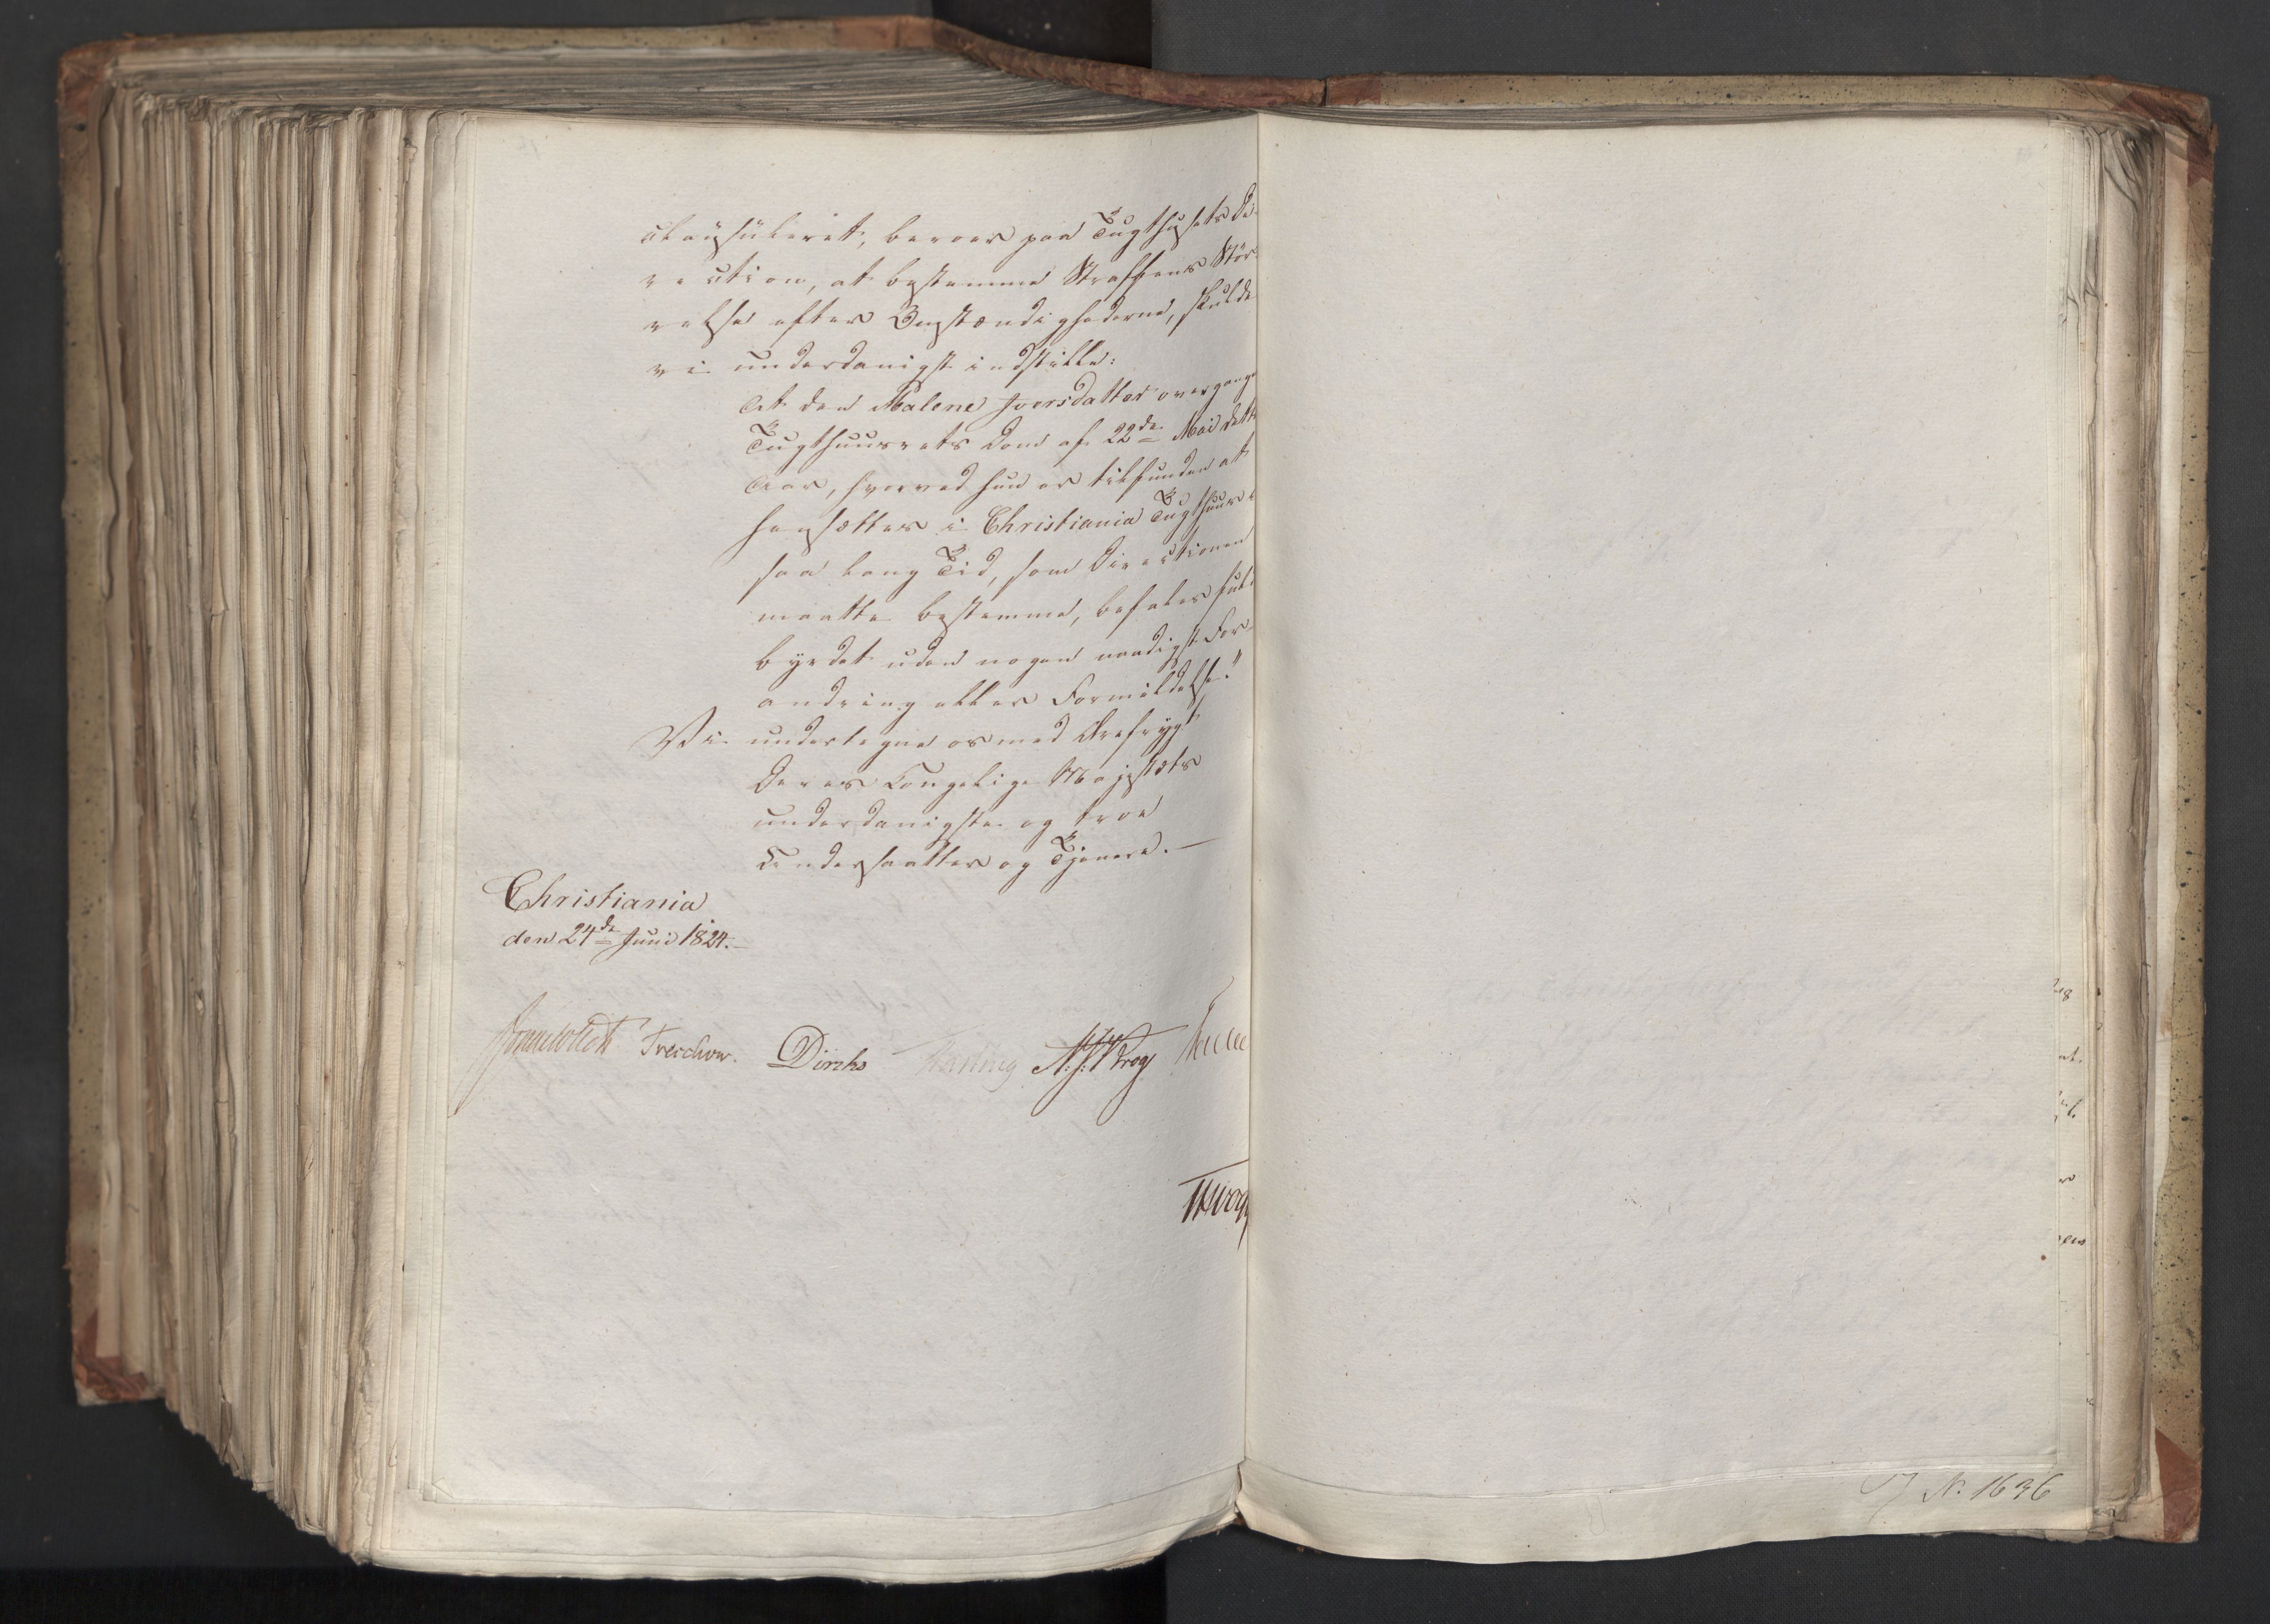 clausuleret, beroer paa Tugthusets Di-
rection, at bestemme Straffens Stør-
relse efter Omstændighederne, skulde
vi underdanigst indstille:
At den Malene Iversdatter overgangne
Tugthuusrets Dom af 22de Mai dette
Aar, hvorved hun er tilfunden at
hensættes i Christiania Tugthuus i
saa lang Tid, som Directionen
maatte bestemme, befales fuld-
byrdet uden nogen naadigst For-
andring eller Formildelse."
Vi undertegne os med Ærefrygt
Deres Kongelige Majestæts
underdanigste og troe
Undersaatter og Tjenere.—
Christiania
den 24de Juni 1824.—
Treschow. Diriks N. J. Krog
N. 1636